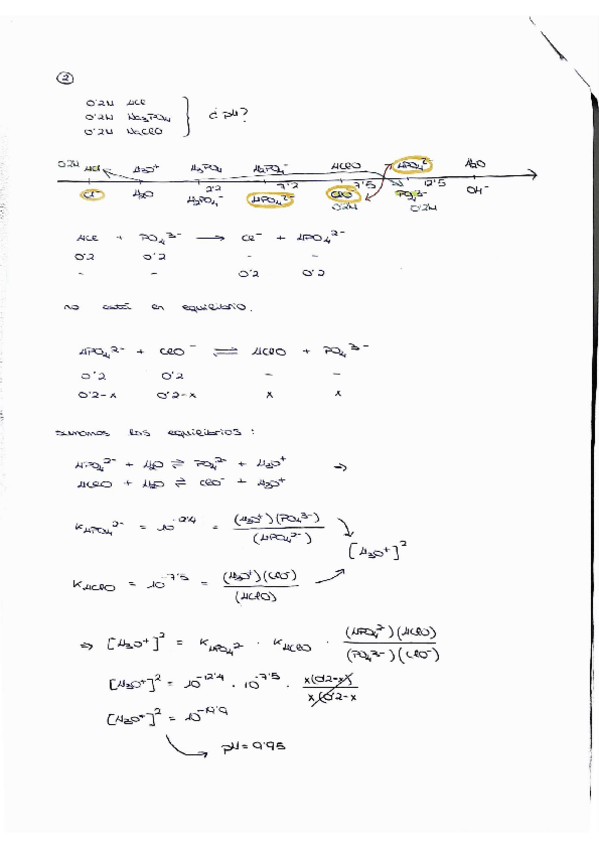 ②
0'2M HCl
0'2M Na₃PO₄ } ¿pH?
0'2M NaClO
0'2M HCl H₃O⁺ H₃PO₄ H₂PO₄⁻ HClO HPO₄²⁻ H₂O
2'2 7'2 7'5 12'5
Cl⁻ H₂O H₂PO₄⁻ HPO₄²⁻ ClO⁻ PO₄³⁻ OH⁻
0'2M 0'2M
HCl + PO₄³⁻ ⟶ Cl⁻ + HPO₄²⁻
0'2 0'2 - -
- - 0'2 0'2
no está en equilibrio.
HPO₄²⁻ + ClO⁻ ⇌ HClO + PO₄³⁻
0'2 0'2 - -
0'2-x 0'2-x x x
sumamos los equilibrios :
HPO₄²⁻ + H₂O ⇌ PO₄³⁻ + H₃O⁺ ⇒
HClO + H₂O ⇌ ClO⁻ + H₃O⁺
K HPO₄²⁻ = 10⁻¹²'⁴ = (H₃O⁺)(PO₄³⁻) / (HPO₄²⁻)
[H₃O⁺]²
K HClO = 10⁻⁷'⁵ = (H₃O⁺)(ClO⁻) / (HClO)
⇒ [H₃O⁺]² = K HPO₄²⁻ · K HClO · (HPO₄²⁻)(HClO) / (PO₄³⁻)(ClO⁻)
[H₃O⁺]² = 10⁻¹²'⁴ · 10⁻⁷'⁵ · x(0'2-x) / x(0'2-x
[H₃O⁺]² = 10⁻¹⁹'⁹
pH = 9'95